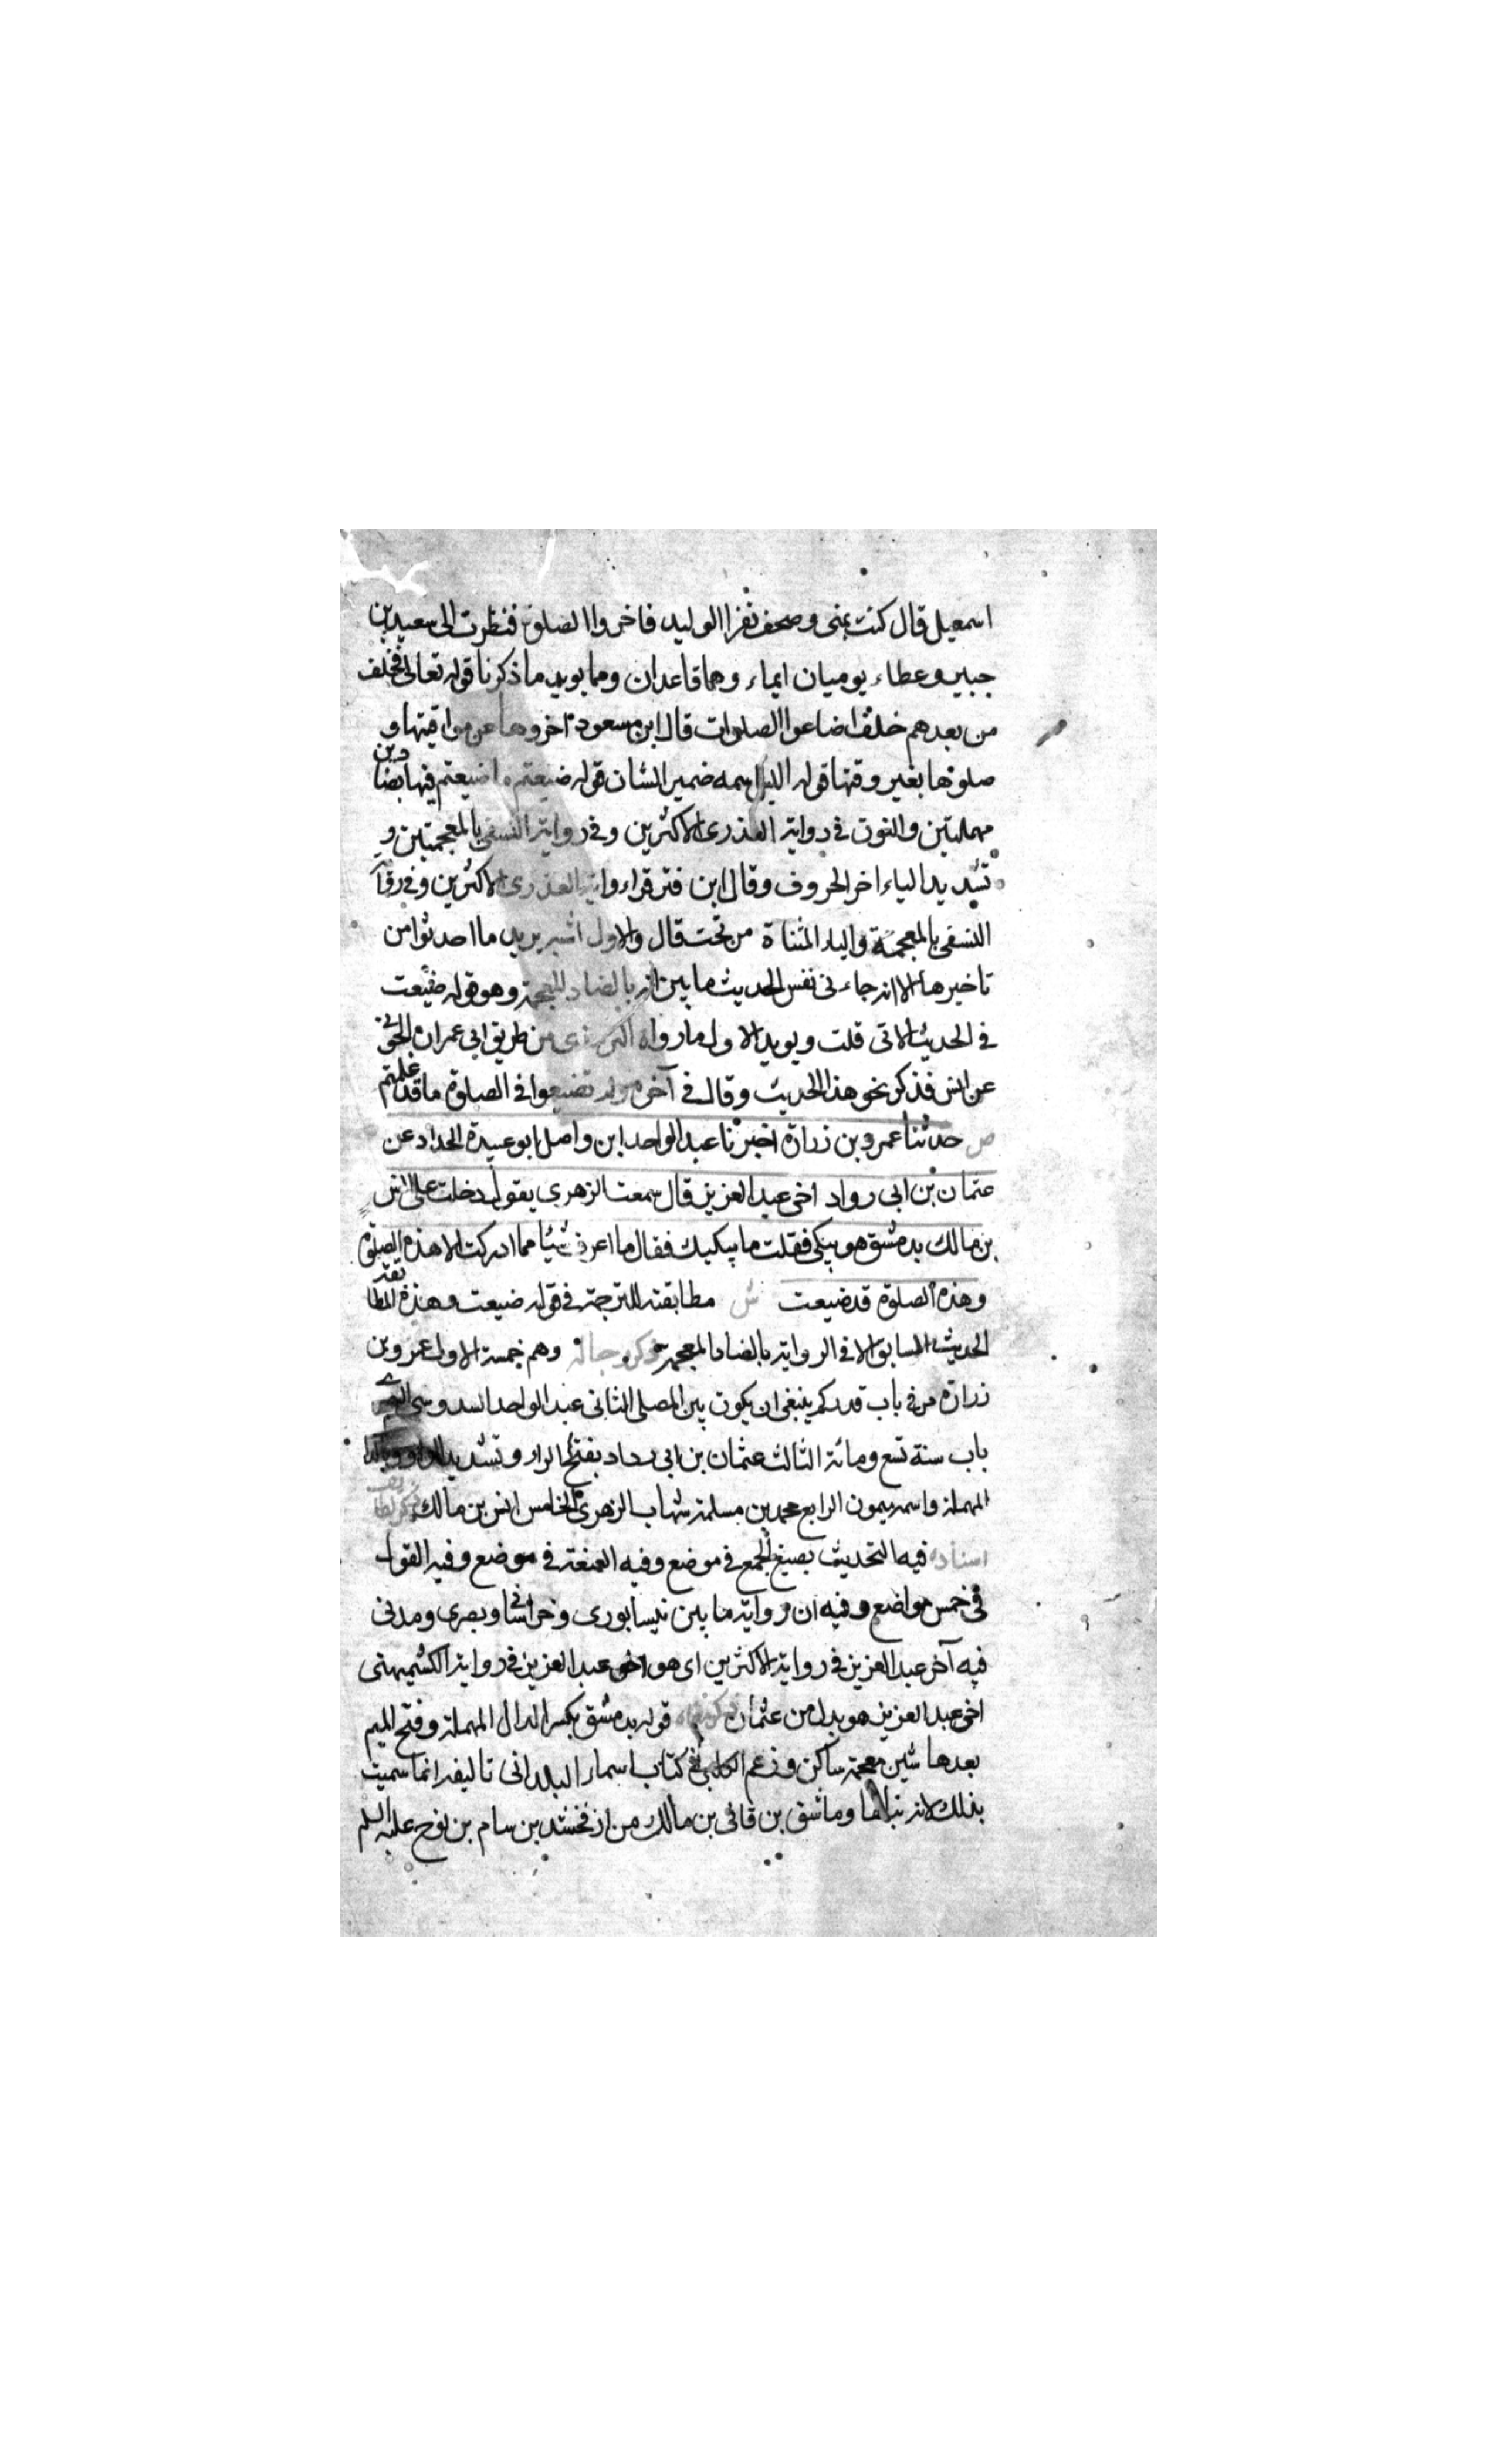 اسمعيل قال كنت بمنى وصحف تقرا الوليد فاخروا الصلوة فنظرت الى سعيد بن
جبير وعطاء يوميان ايماء وهما قاعدان ومما يويد ما ذكرنا قوله تعالى فخلف
من بعدهم خلف اضاعوا الصلوات قال ابن مسعود اخروها عن مواقيتها و
صلوها بغير وقتها قوله اليس اسمه ضمير الشان قوله ضيعتم ما ضيعتم فيها بصادين
مهملتين والنون في رواية العذرى الاكثرين وفي رواية النسفي بالمعجمتين و
تشديد الياء اخر الحروف وقال ابن قرقراء رواية العذرى الاكثرين وفي
النسفي بالمعجمة والياء المثناة من تحت قال والاول اشبه يريد ما احدثوا من
تاخيرها الا انه جاء في نفس الحديث ما يبين انه بالضاد المعجمة وهو قوله ضيعت
في الحديث الاتى قلت ويويد الاول ما رواه الترمذى من طريق ابي عمران الجوني
عن انس فذكر نحو هذا الحديث وقال في آخره ولم تضيعوا في الصلوة ما قد علمتم
ص حدثنا عمرو بن زرارة اخبرنا عبد الواحد ابن واصل ابو عبيدة الحداد عن
عثمان بن ابي رواد اخى عبد العزيز قال سمعت الزهرى يقول دخلت على انس
بن مالك بدمشق هو يبكى فقلت ما يبكيك فقال ما اعرف شيئا مما ادركت الا هذه الصلوة
وهذه الصلوة قد ضيعت ش مطابقته للترجمة في قوله ضيعت وهذة المطا تقدر
الحديث السابق الا في الرواية بالضاد المعجمة ذكر رجاله وهم خمسة الاول عمرو بن
زرارة مر في باب قدر كم ينبغى ان يكون بين المصلى الثانى عبد الواحد السدوسى
باب سنة تسع ومائة الثالث عثمان بن ابى رواد بفتح الراء وتشديد الواو
المهملة واسمه ميمون الرابع محمد بن مسلمة شهاب الزهرى الخامس انس بن مالك ذكر لطا
اسناده فيه التحديث بصيغ الجمع في موضع وفيه العنعنة في موضع وفيه القول
في خمس مواضع وفيه ان رواية ما بين نيسابورى وخراسانى وبصرى ومدنى
فيه آخر عبد العزيز في رواية الاكثرين اى هو اخو عبد العزيز في رواية الكشميهنى
اخى عبد العزيز هو بدل من عثمان ذكر معناه قوله بدمشق بكسر الدال المهملة وفتح الميم
بعدها شين معجمة ساكن وزعم الكلبى في كتاب اسماء البلدانى تاليفه انما سميت
بذلك لانه بناها وماشق بن قانى بن مالك من ارفخشد بن سام بن نوح عليه السلم